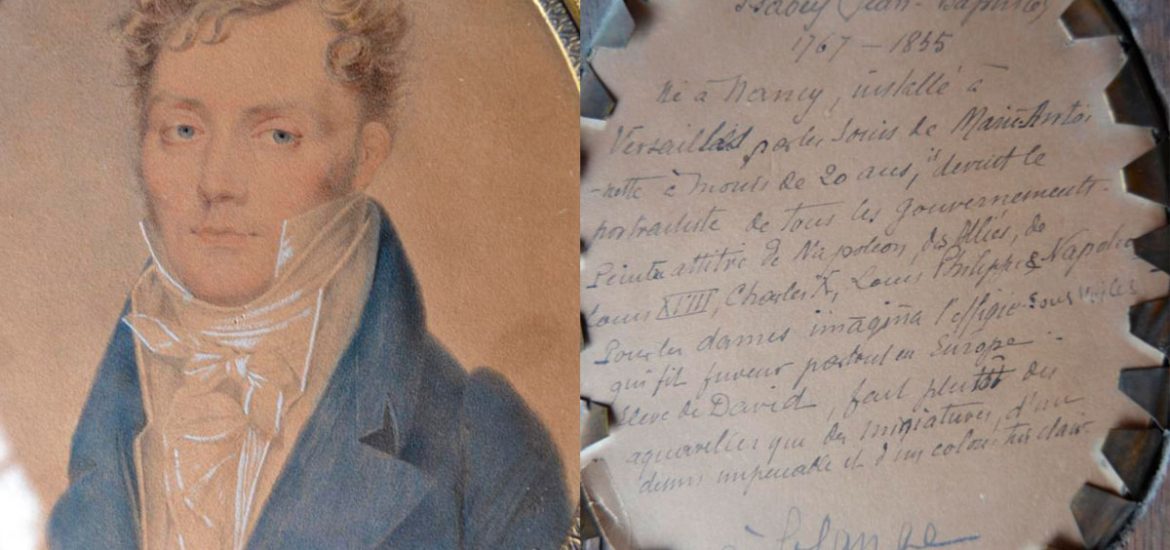 Isabey (Jean-Baptiste)
1767 – 1855
Né à Nancy, installé à
Versailles par les soins de Marie-Antoi
-nette à moins de 20 ans, il devint le
portraitiste de tous les gouvernements.
Peintre attitré de Napoléon, des Alliés, de
Louis XVIII, Charles X, Louis Philippe & Napoléo
Pour les dames imagina l'effigie sous voiles
qui fit fureur partout en Europe.
Elève de David, fait plutôt des
aquarelles que des miniatures, d'un
dessin impeccable et d'un coloris très